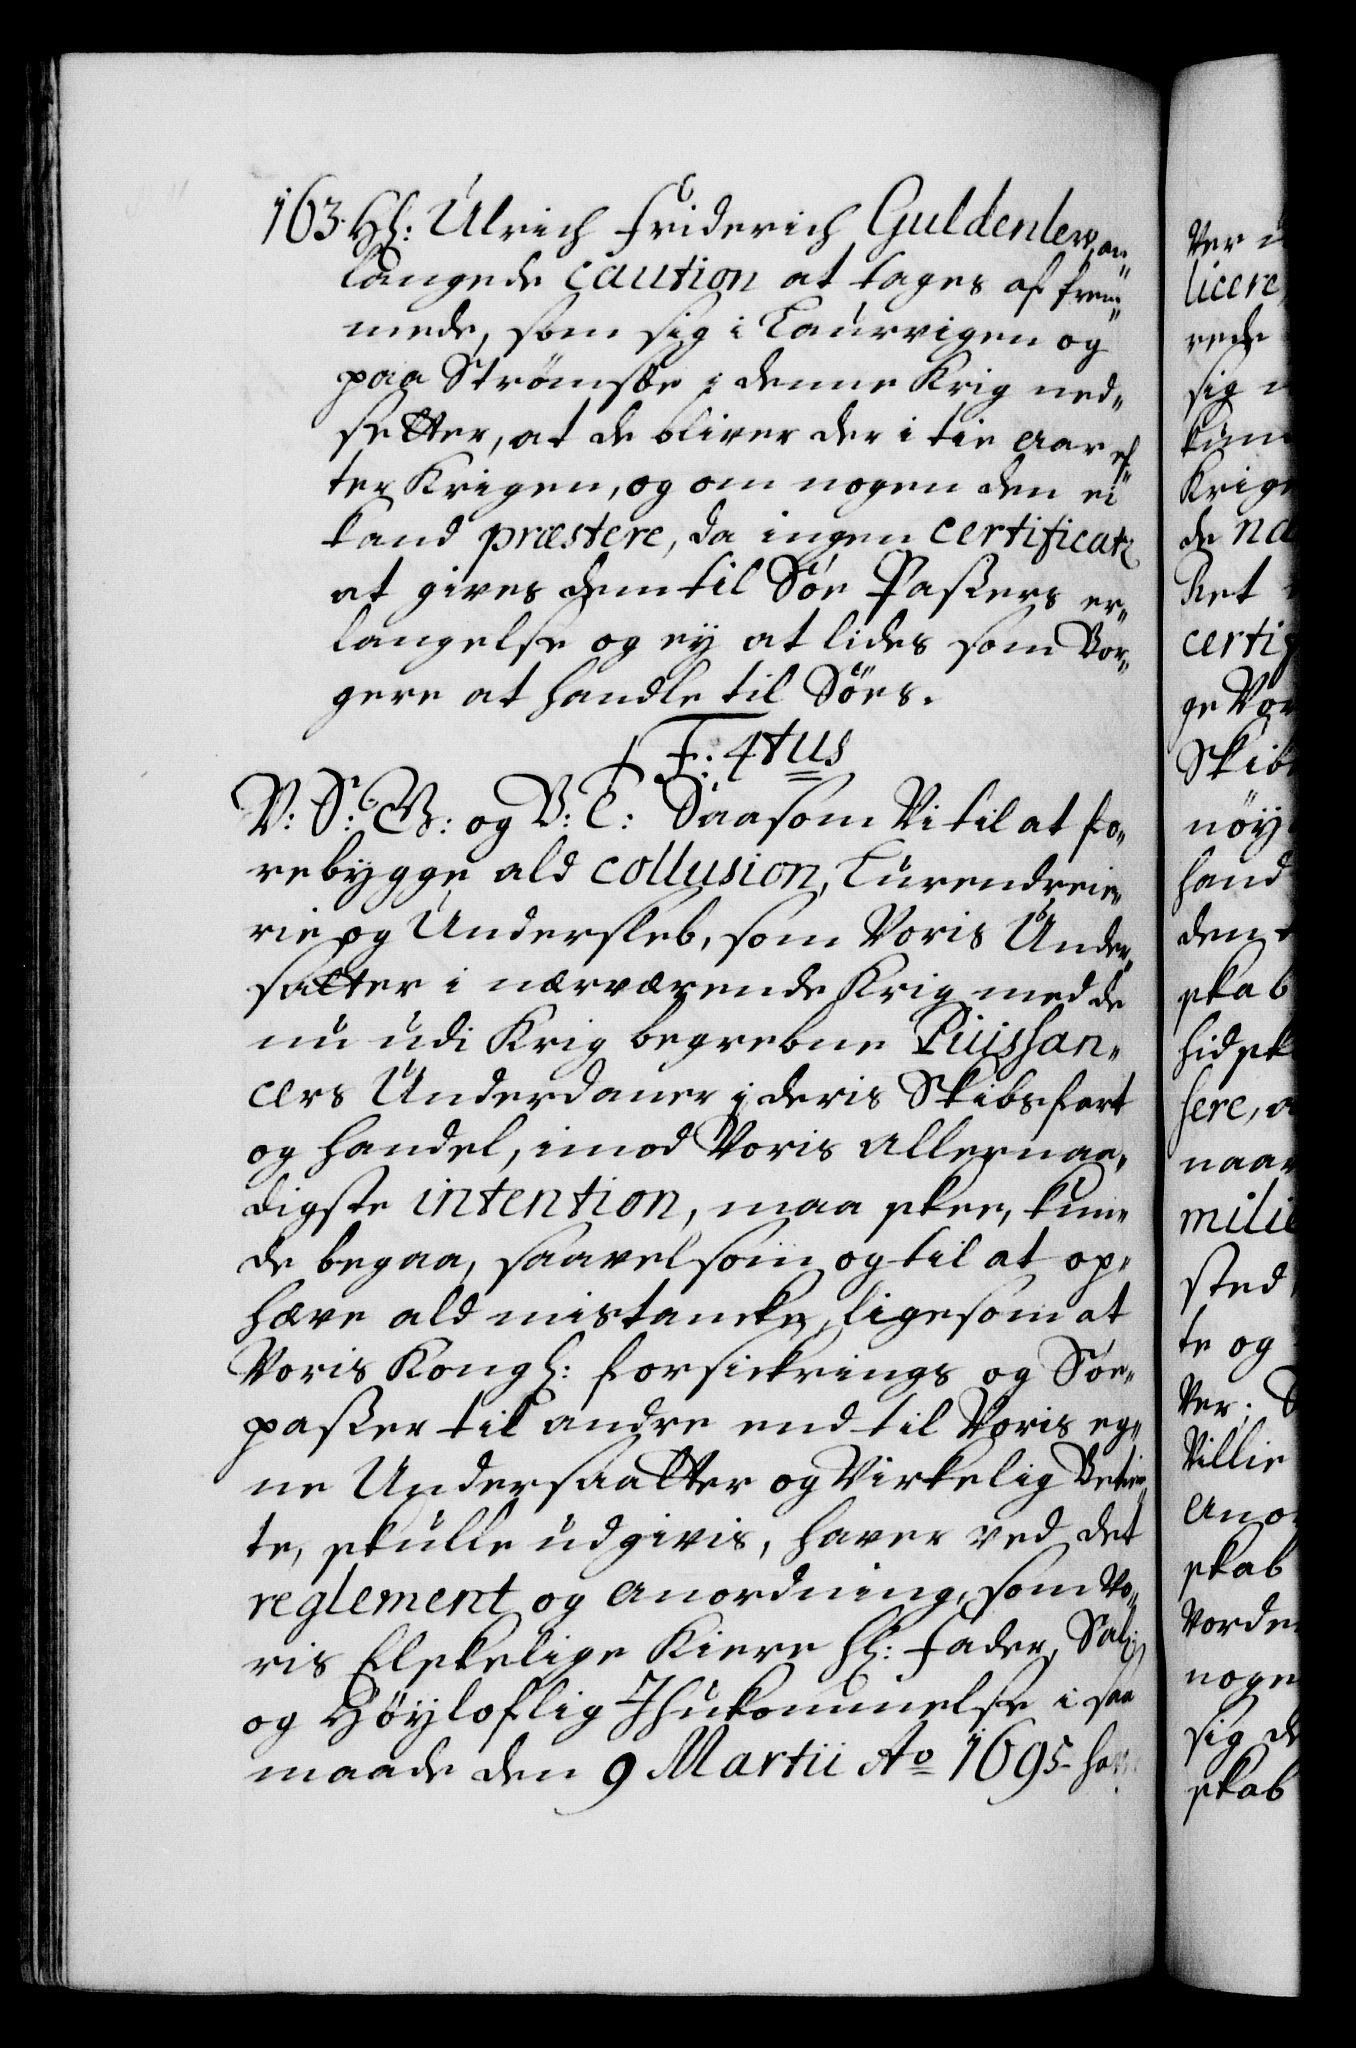 163. Hl: Ulrich Friderich Guldenlew, an„
langede caution at tages af frem„
mede, som sig i Laurvigen og
paa Strömsöe i denne Krig ned„
sætter, at de bliver der i tie aar ef„
ter Krigen, og om nogen den ei
kand præstere, da ingen certificatz
at gives dem til Söe Passers er„
langelse og ey at lides som Bor„
gere at handle til Söes.
F: 4tus
V: S: G: og B: T: Saasom Vi til at fo„
rebygge ald collusion, Lurendreie„
rie og Undersleb, som Voris Under„
satter i nærværende Krig med de
nu udi Krig begrebne Puissan„
cers Underdaner i deris Skibsfart
og handel, imod Voris allernaa„
digste intention, maa skee, kun„
de begaa, saavelsom og til at op„
hæve ald mistancke, ligesom at
Voris Kongl: forsickrings og Söe„
passer til andre end til Voris eg„
ne Undersaatter og Virkelig Betien„
te, skulle udgivis, haver ved det
reglement og anordning, som Vo„
ris Elskelige Kiere Hl: Fader, Sal:
og Höyloflig Ihukommelse i saa
maade den 9 Martii Ao 1695 hav
Ver
licere
rede
sig
kun
Krige
de na
Ret
certif
ge Vor
Skib
nöy
hand
den
skab
hidsk
sere, a
naar
milie
sted
te og
Ver. S
Villie
anor
skab
Vorde
noge
sig de
skab